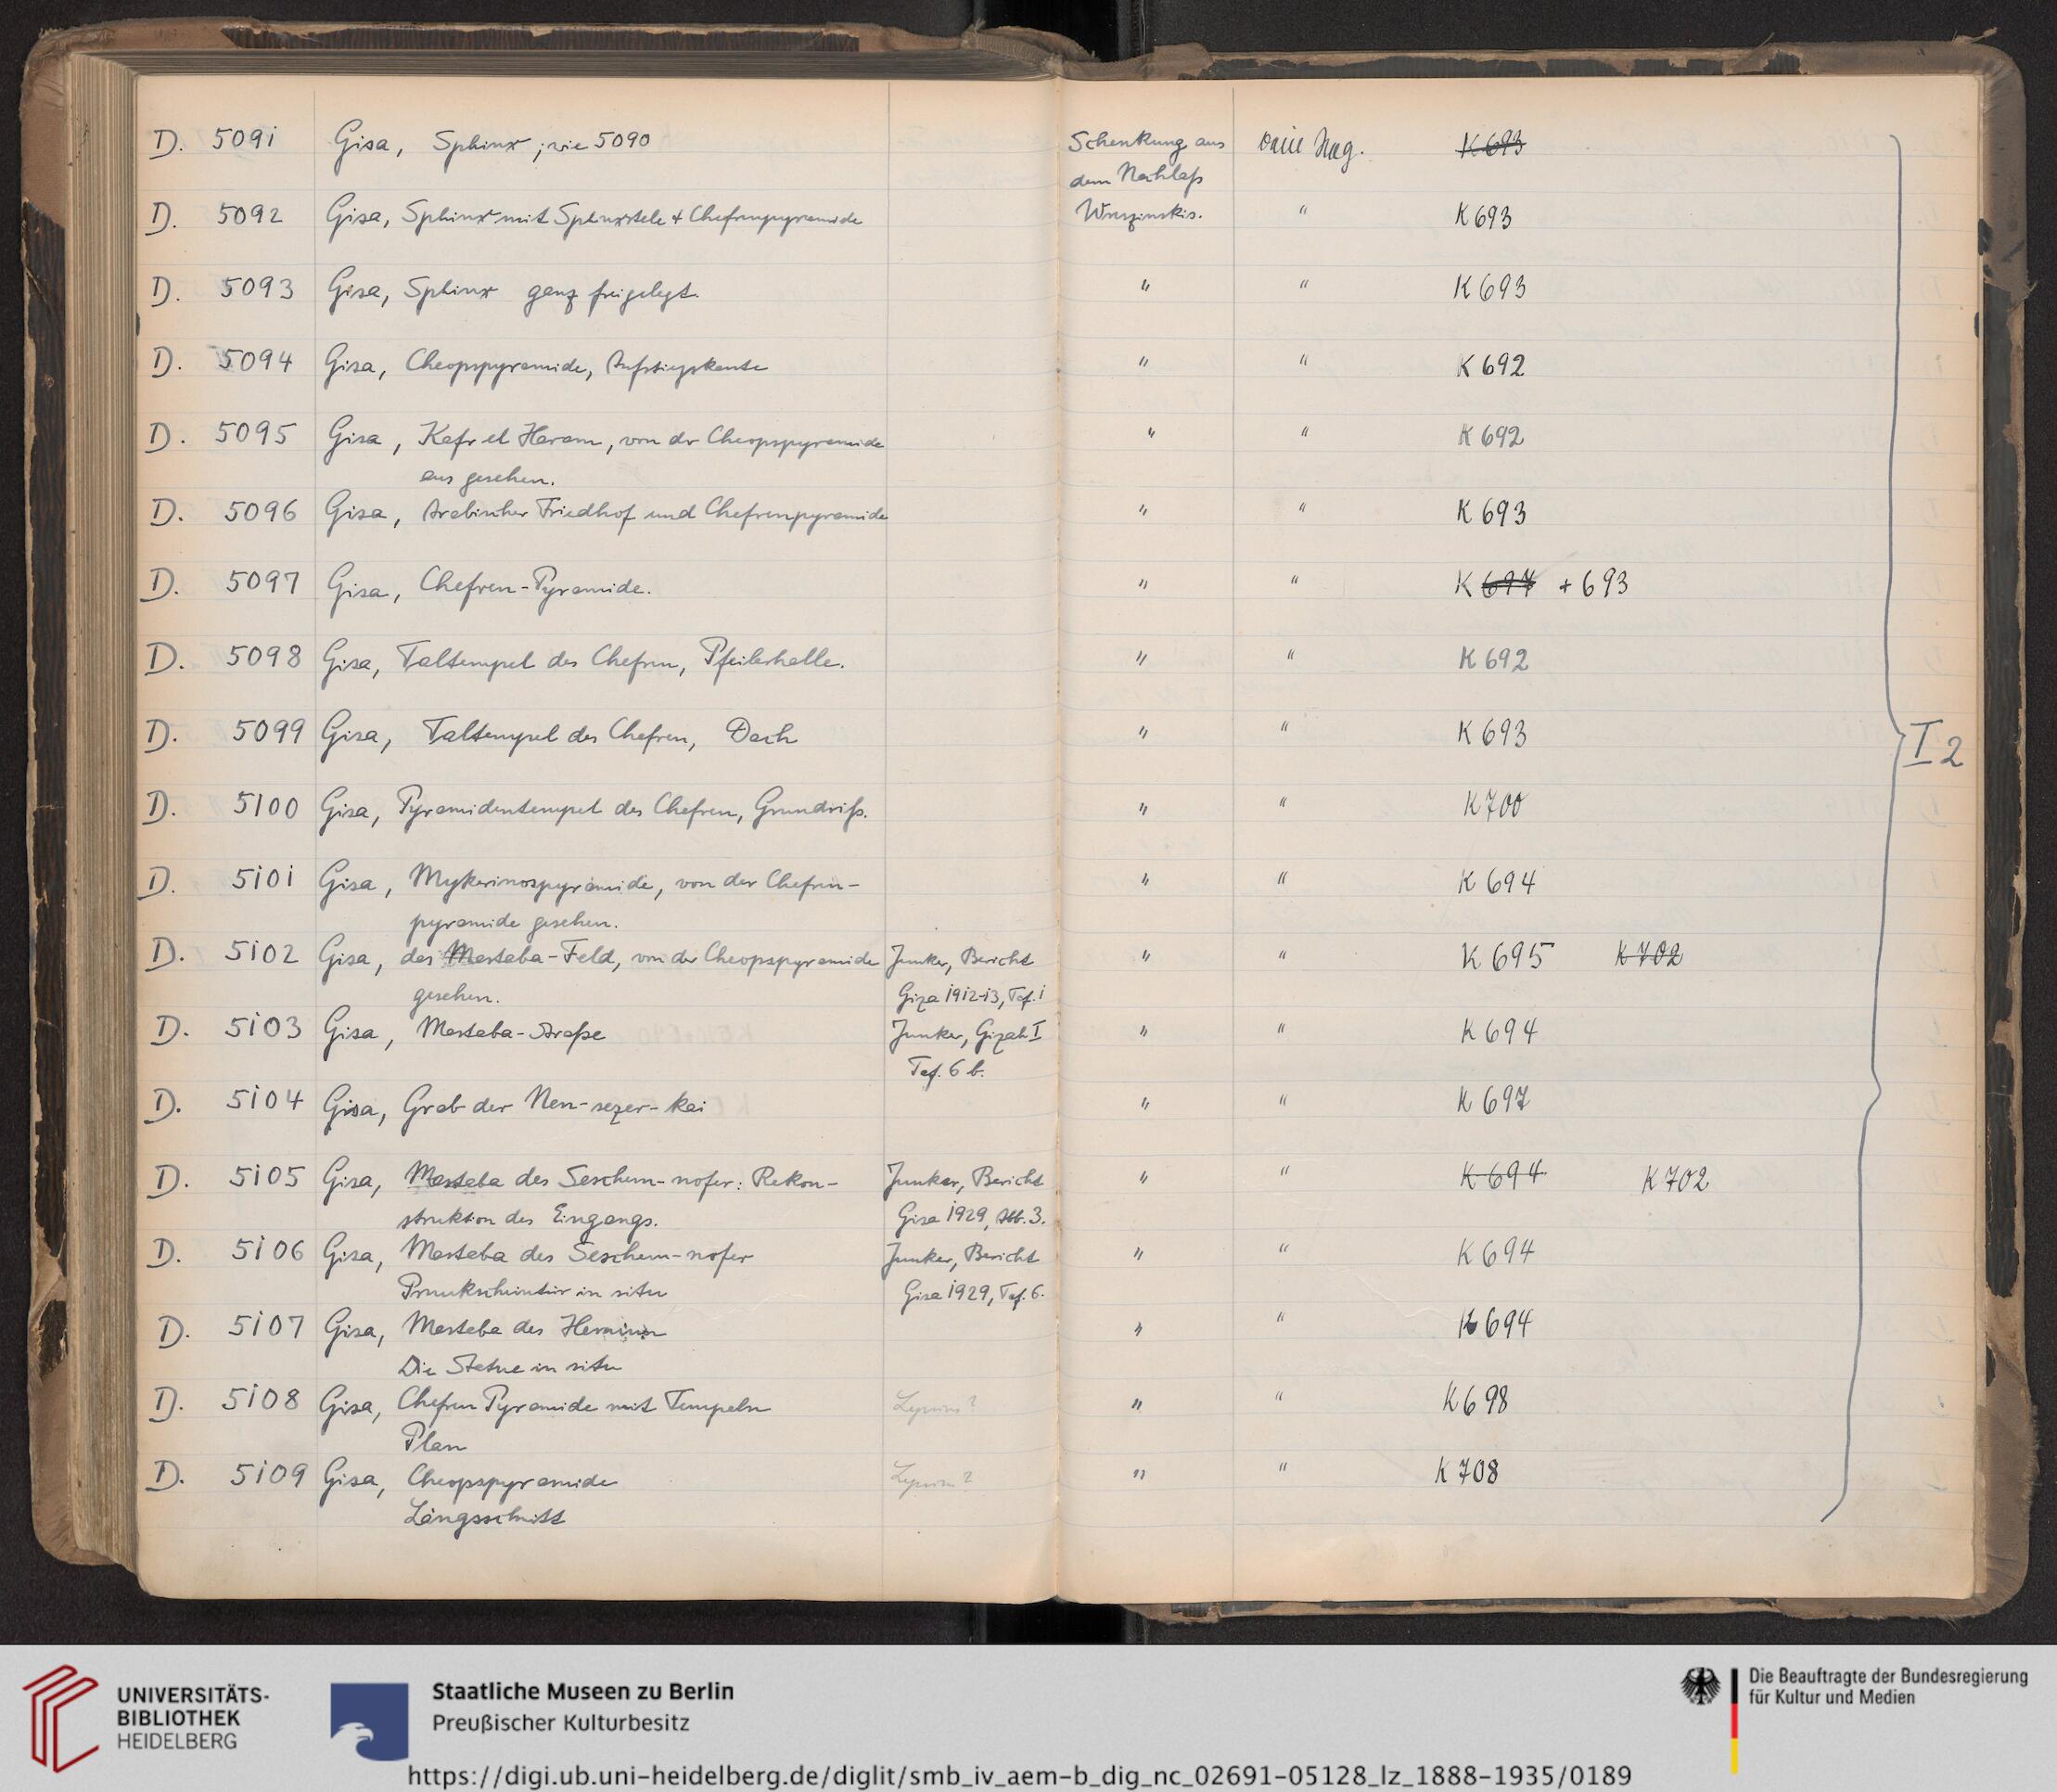 D. 5091 Gisa, Sphinx, wie 5090 Schenkung aus kein Neg. K 693
dem Nachlaß
D. 5092 Gisa, Sphinx mit Sphinxstele + Chefrenpyramide Wreszinskis. " K 693
D. 5093 Gisa, Sphinx ganz freigelegt. " " K 693
D. 5094 Gisa, Cheopspyramide, Aufstiegskante " " K 692
D. 5095 Gisa, Kafr el Haram, von der Cheopspyramide " " K 692
aus gesehen.
D. 5096 Gisa, Arabischer Friedhof und Chefrenpyramide " " K 693
D. 5097 Gisa, Chefren-Pyramide. " " K 697 + 693
D. 5098 Gisa, Taltempel des Chefren, Pfeilerhalle. " " K 692
D. 5099 Gisa, Taltempel des Chefren, Dach " " K 693
I 2
D. 5100 Gisa, Pyramidentempel des Chefren, Grundriß. " " K 700
D. 5101 Gisa, Mykerinospyramide, von der Chefren- " " K 694
pyramide gesehen.
D. 5102 Gisa, das Mastaba-Feld, von der Cheopspyramide Junker, Bericht " " K 695 K 702
gesehen. Giza 1912-13, Taf. 1
D. 5103 Gisa, Mastaba-Straße Junker, Gizah I " " K 694
Taf. 6 b.
D. 5104 Gisa, Grab der Nen-sezer-kai " " K 697
D. 5105 Gisa, Mastaba des Seschem-nofer: Rekon- Junker, Bericht " " K 694 K 702
struktion des Eingangs. Gisa 1929, Abb. 3.
D. 5106 Gisa, Mastaba des Seschem-nofer Junker, Bericht " " K 694
Prunkscheintür in situ Gisa 1929, Taf. 6.
D. 5107 Gisa, Mastaba des " " K 694
Die Statue in situ
D. 5108 Gisa, Chefren Pyramide mit Tempeln " " K 698
Plan
D. 5109 Gisa, Cheopspyramide " " K 708
Längsschnitt
UNIVERSITÄTS-
BIBLIOTHEK
HEIDELBERG
Staatliche Museen zu Berlin
Preußischer Kulturbesitz
Die Beauftragte der Bundesregierung
für Kultur und Medien
https://digi.ub.uni-heidelberg.de/diglit/smb_iv_aem-b_dig_nc_02691-05128_lz_1888-1935/0189